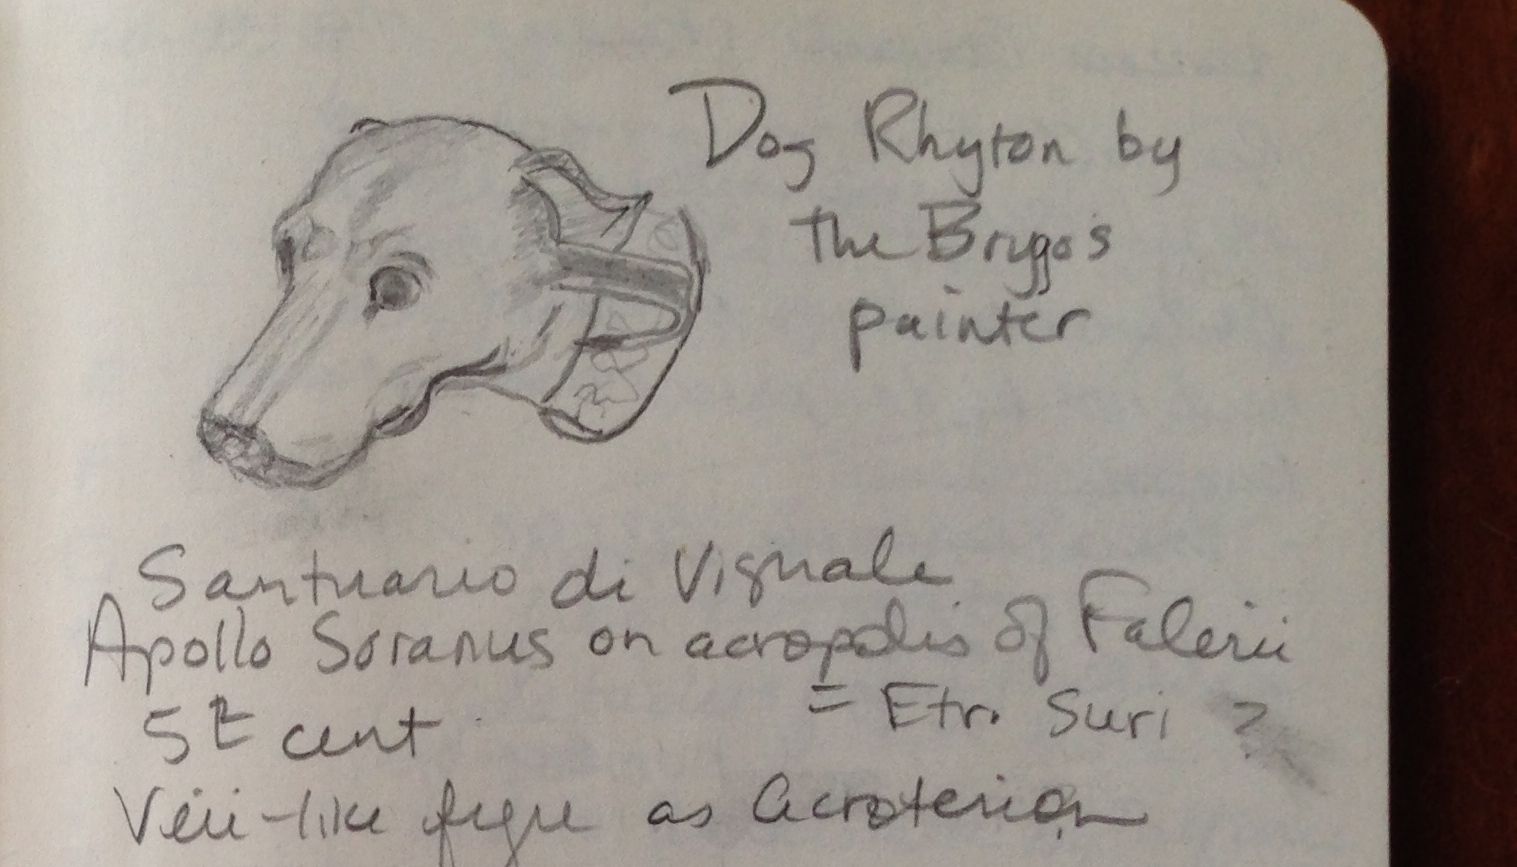 Dog Rhyton by
the Brygos
painter
Santuario di Vignale
Apollo Soranus on acropolis of Falerii
= Etr. Suri ?
5th cent
Veii-like figure as acroterion